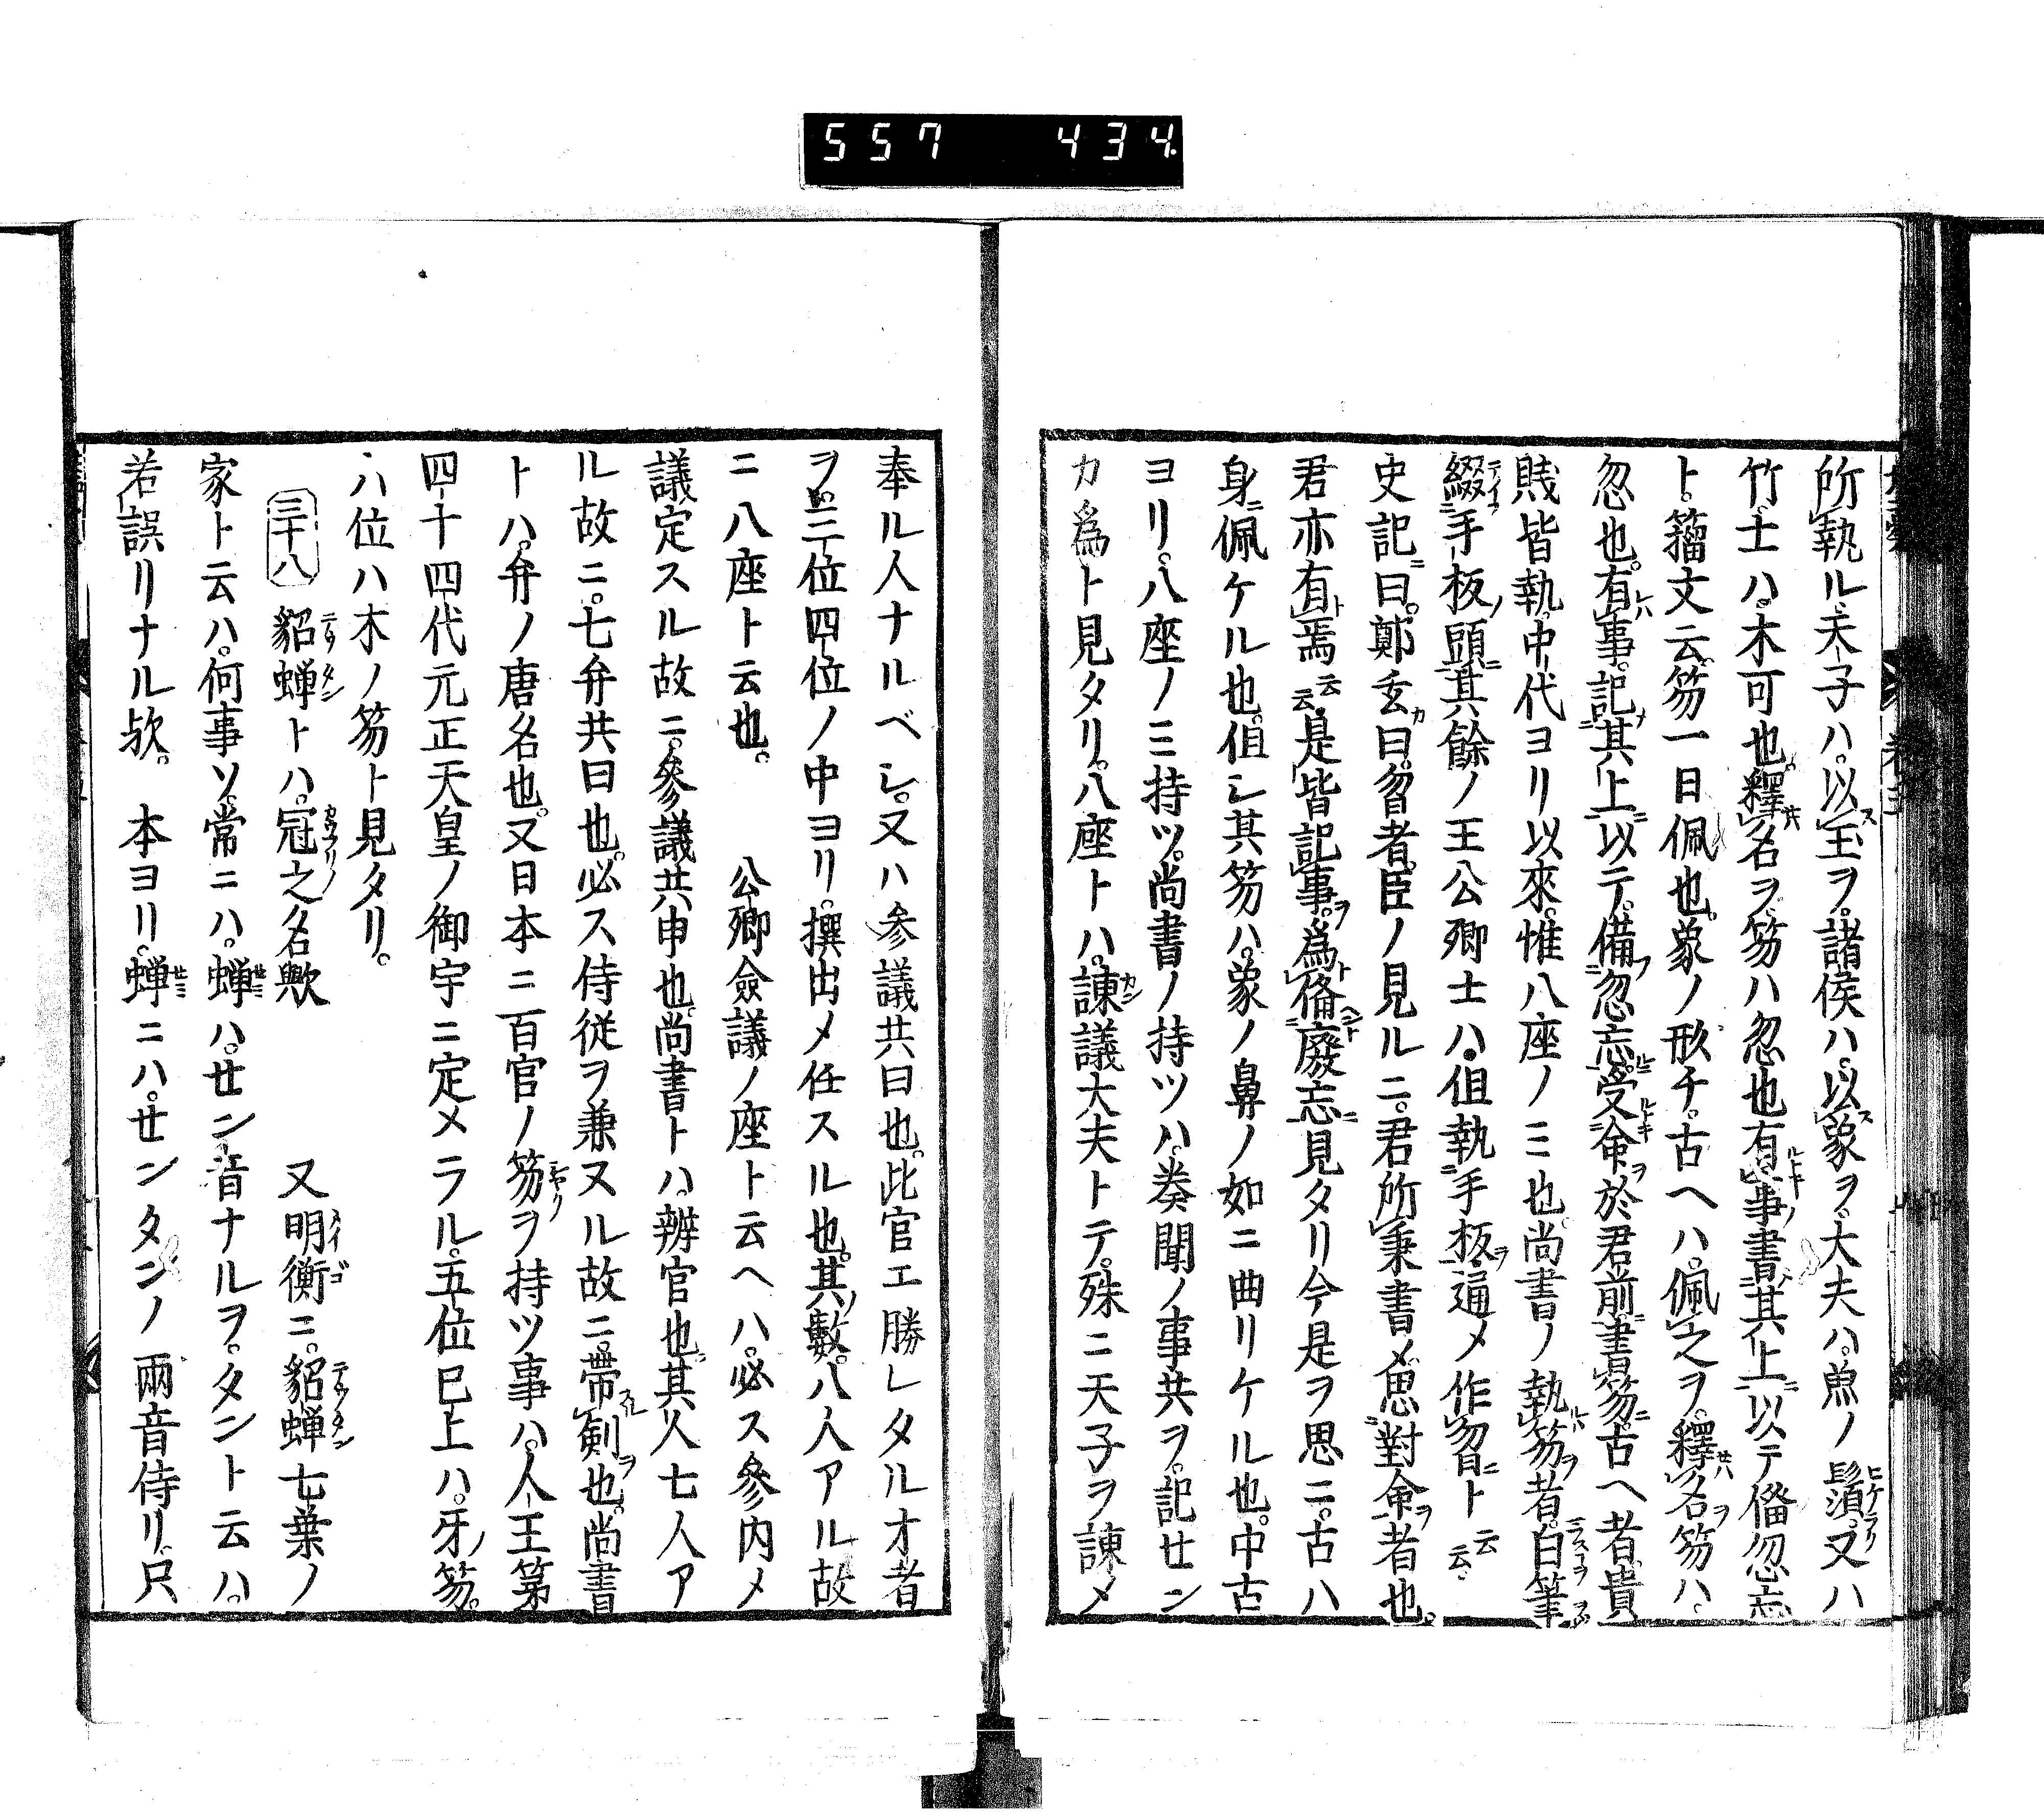 557 434
所執ル、天子ハ。以玉ヲ。諸侯ハ。以象ヲ、大夫ハ。魚ノ鬚。又ハ
竹、士ハ。木可也。釋名ヲ、笏ハ忽也有事書其上以テ俻忽忘
ト。籀文云笏一曰佩也。象ノ形チ。古ヘハ。佩之ヲ。釋名笏ハ。
忽也。有事。記其上以テ。備忽忘。受命於君前書笏。古ヘ者貴
賎皆執。中代ヨリ以來。惟八座ノミ也尚書ノ執笏者。白筆
綴手板頭其餘ノ王公卿士ハ。但執手板通メ作曶ト云云。
史記曰。鄭玄曰。曶者。臣ノ見ルニ。君所秉書メ思對命者也。
君亦有焉云云。是皆記事。爲俻廢忘見タリ今是ヲ思ニ。古ハ
身佩ケル也。但シ其笏ハ。象ノ鼻ノ如ニ曲リケル也。中古
ヨリ。八座ノミ持ツ。尚書ノ持ツハ。奏聞ノ事共ヲ。記セン
カ爲ト見タリ。八座トハ。諫議大夫トテ。殊ニ天子ヲ諫メ
奉ル人ナルベシ。又ハ参議共曰也。此官エ勝レタルオ者
ヲ。三位四位ノ中ヨリ。撰出メ任スル也。其數。八人アル故
ニ八座ト云也。　公卿僉議ノ座ト云ヘハ。必ス參内メ
議定スル故ニ。參議共申也。尚書トハ。辨官也。其人七人ア
ル故ニ。七弁共曰也。必ス侍従ヲ兼ヌル故ニ。帶剣也。尚書
トハ。弁ノ唐名也。又日本ニ百官ノ笏ヲ持ツ事ハ。人王第
四十四代元正天皇ノ御宇ニ定メラル。五位已上ハ。牙笏。
六位ハ木ノ笏ト見タリ。
三十八 貂蝉トハ。冠之名歟　又明衡ニ。貂蝉七葉ノ
家ト云ハ。何事ソ。常ニハ。蝉ハ。セン音ナルヲ。タント云ハ。
若誤リナル欤。　本ヨリ。蝉ニハ。センタンノ兩音侍リ。只